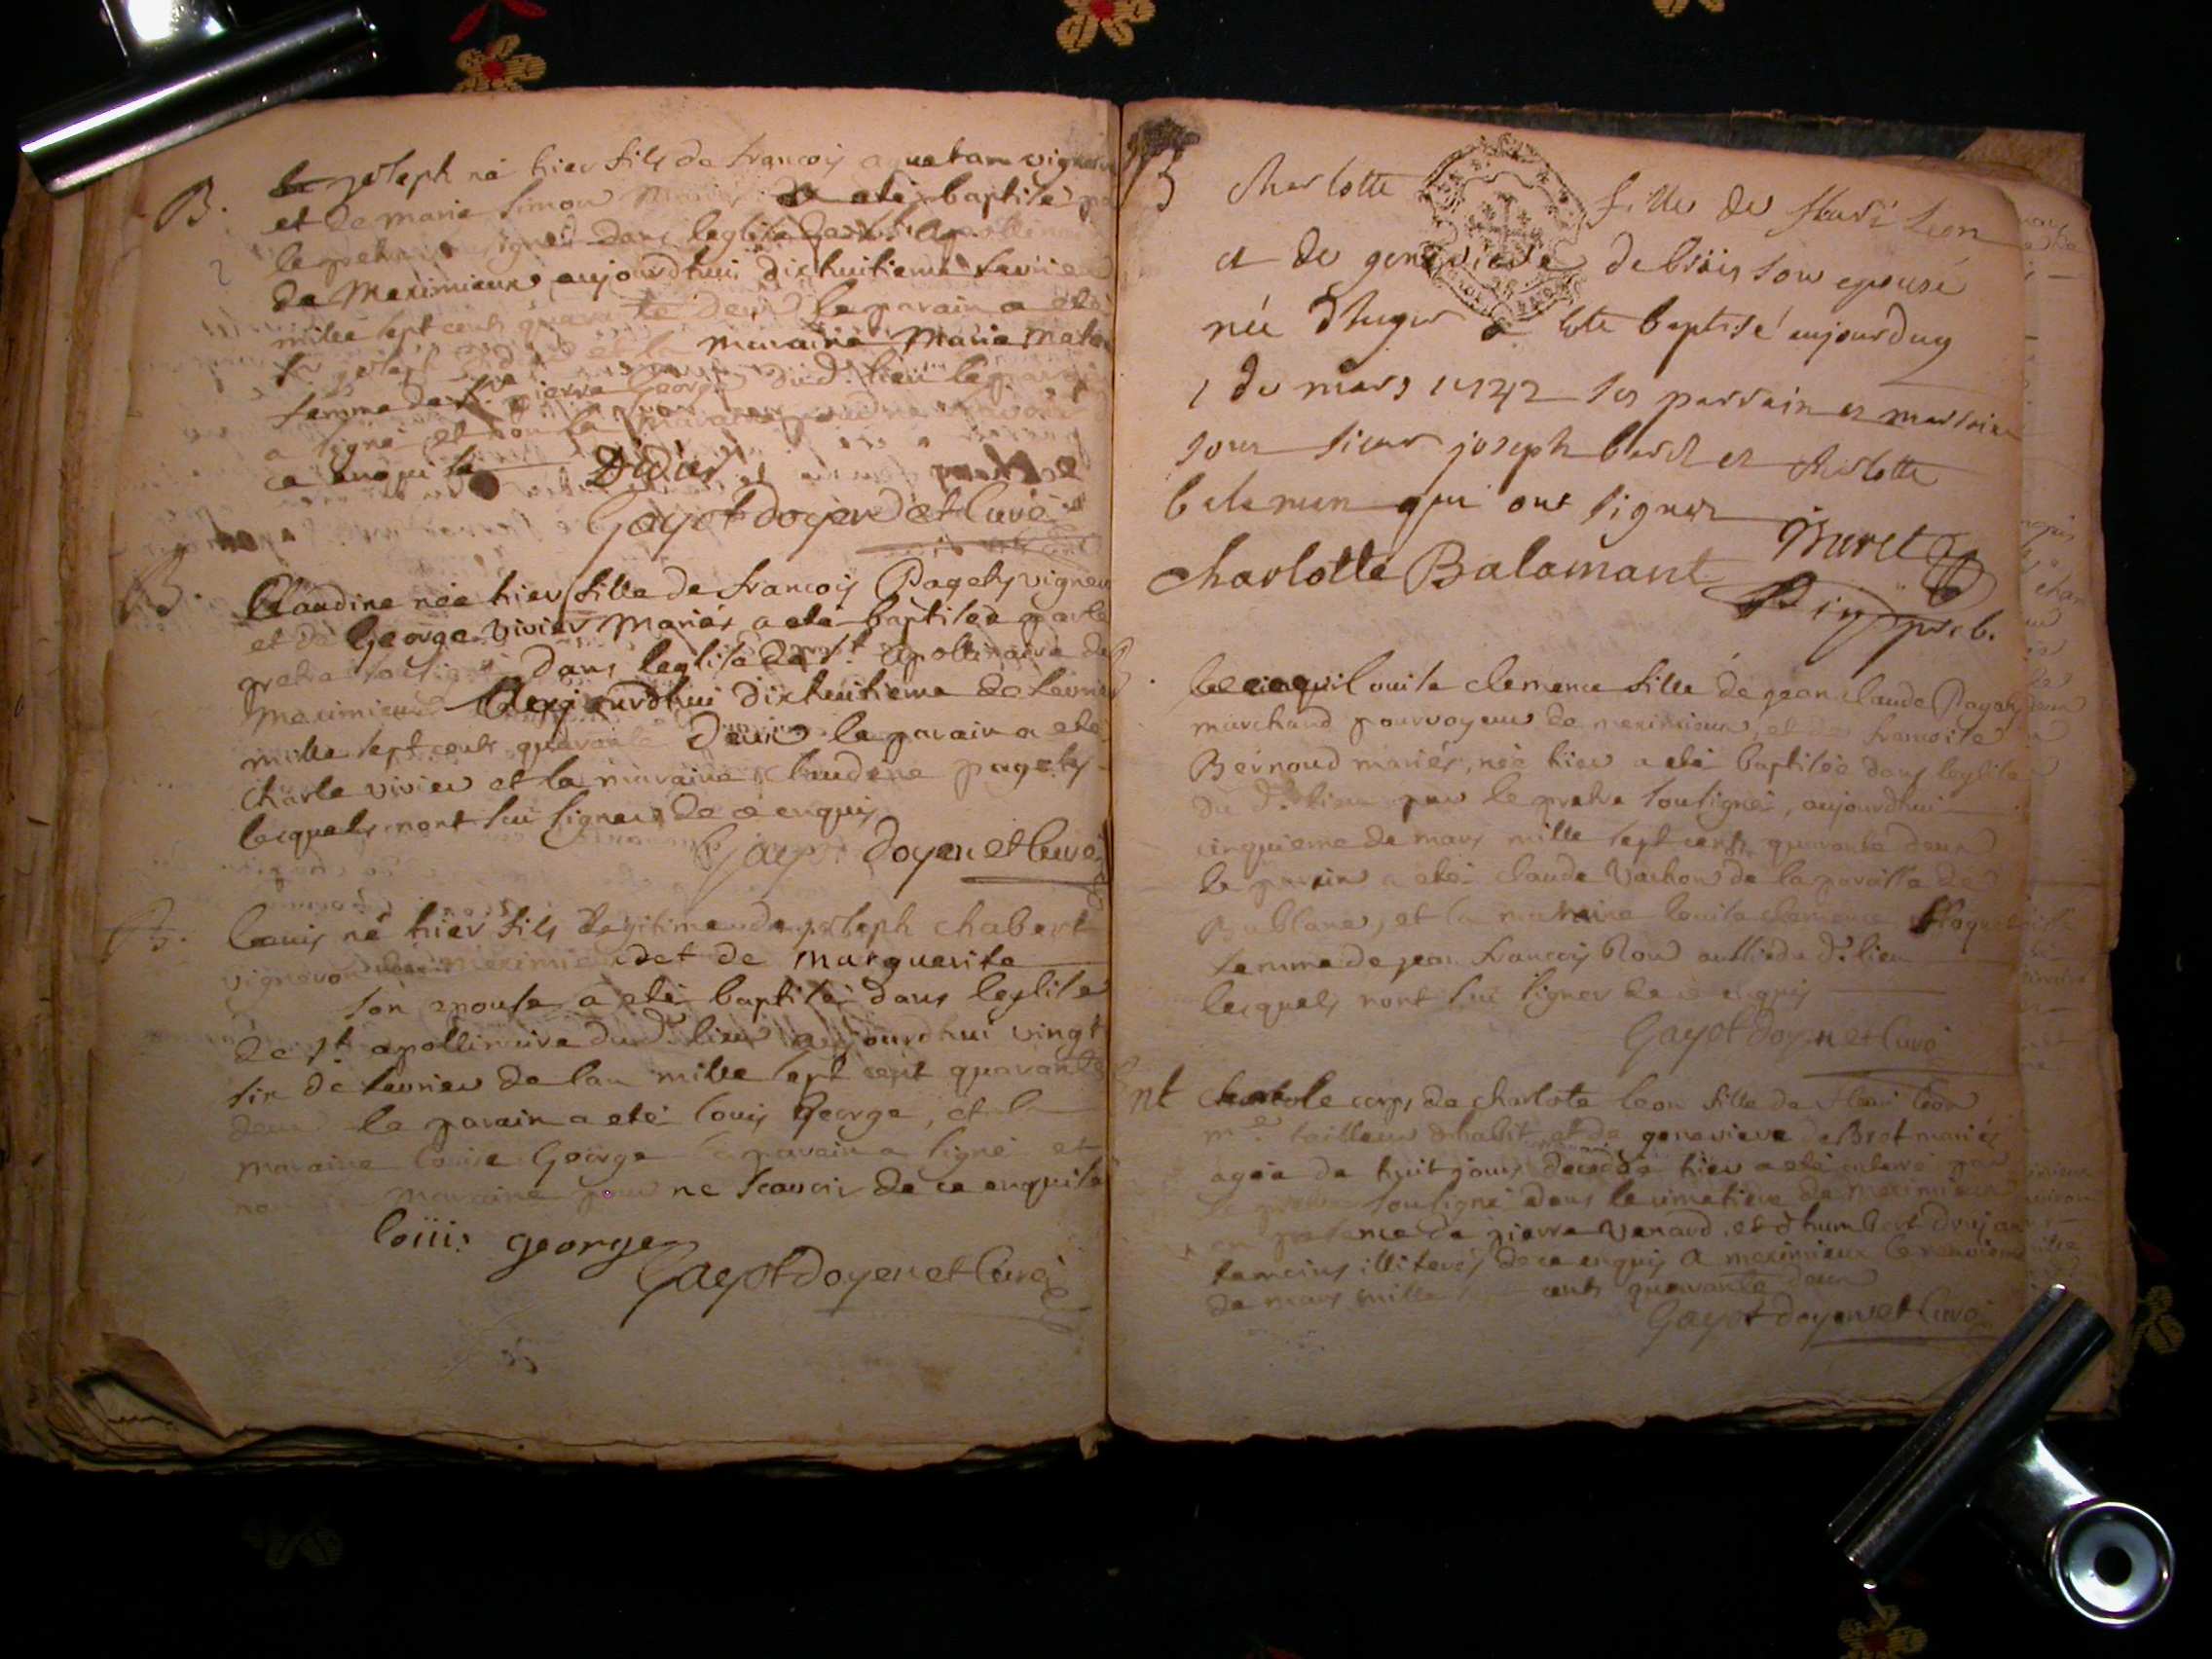 B.
joseph né hier fils de francois vigneron
et de marie simon mariés a eté baptisé
soussigné dans leglise
de Meximieux aujourdhui dixhuitieme fevrier
mille sept cents quarante deux le parain a eté
sr joseph et la maraine Marie
femme de sr. pierre George dud. lieu le parain
a signé et non la maraine pour ne scavoir
ce enquise Didier
Gayot doyen et Curé
B.
Claudine née hier fille de francois Pagety vigneron
et de George vivier Mariés a eté baptisée par le
pretre soussigné dans leglise de st. apollinaire de
Meximieux aujourdhui dixhuitieme de fevrier
mille sept cents quarante deux le parain a eté
charle vivier et la maraine Claudine pagety
lesquels nont sui signer de ce enquis
Gayot doyen et Curé
B.
Louis né hier fils legitime de joseph chabert
vigneron de meximieux et de Marguerite
son epouse a eté baptisé dans leglise
de st. apollinaire du d. lieu aujourdhui vingt
six de fevrier de lan mille sept cent quarante
deux le parain a eté louis George, et la
maraine louise George le parain a signé et
non la maraine pour ne scavoir de ce enquise
loiiis george
Gayot doyen et Curé
B
Charlotte fille de fleuri leon
et de genevieve debriis son epouse
née d'hyer a esté baptisé aujourduy
1 de mars 1742 ses parrain et marraine
sieur joseph buret et charlotte
balemen qui ont signer
Buret
Charlotte Balamant
B.
louise clemence fille de jean claude Pagety
marchand pourvoyeur de meximieux, et de francoise
Bernoud mariés, née hier a eté baptisée dans leglise
du d. lieu par le pretre soussigné, aujourdhui
cinquieme de mars mille sept cents quarante deux
le parain a eté claude Vachon de la paroisse de
Bublane, et la maraine louise clemence
femme de jean francois aussi du d. lieu
lesquels nont sui signer de ce enquis
Gayot doyen et Curé
nt
le corps de charlote leon fille de fleuri leon
me tailleur dhabit et de genevieve de Bret mariés
agée de huit jours decedée hier a eté enterré par
le pretre soussigné dans le cimetiere de meximieux
en presence de pierre Venard, et dhumbert
temoins illiterés de ce enquis A meximieux le neuvieme
de mars mille sept cents quarante deux
Gayot doyen et Curé